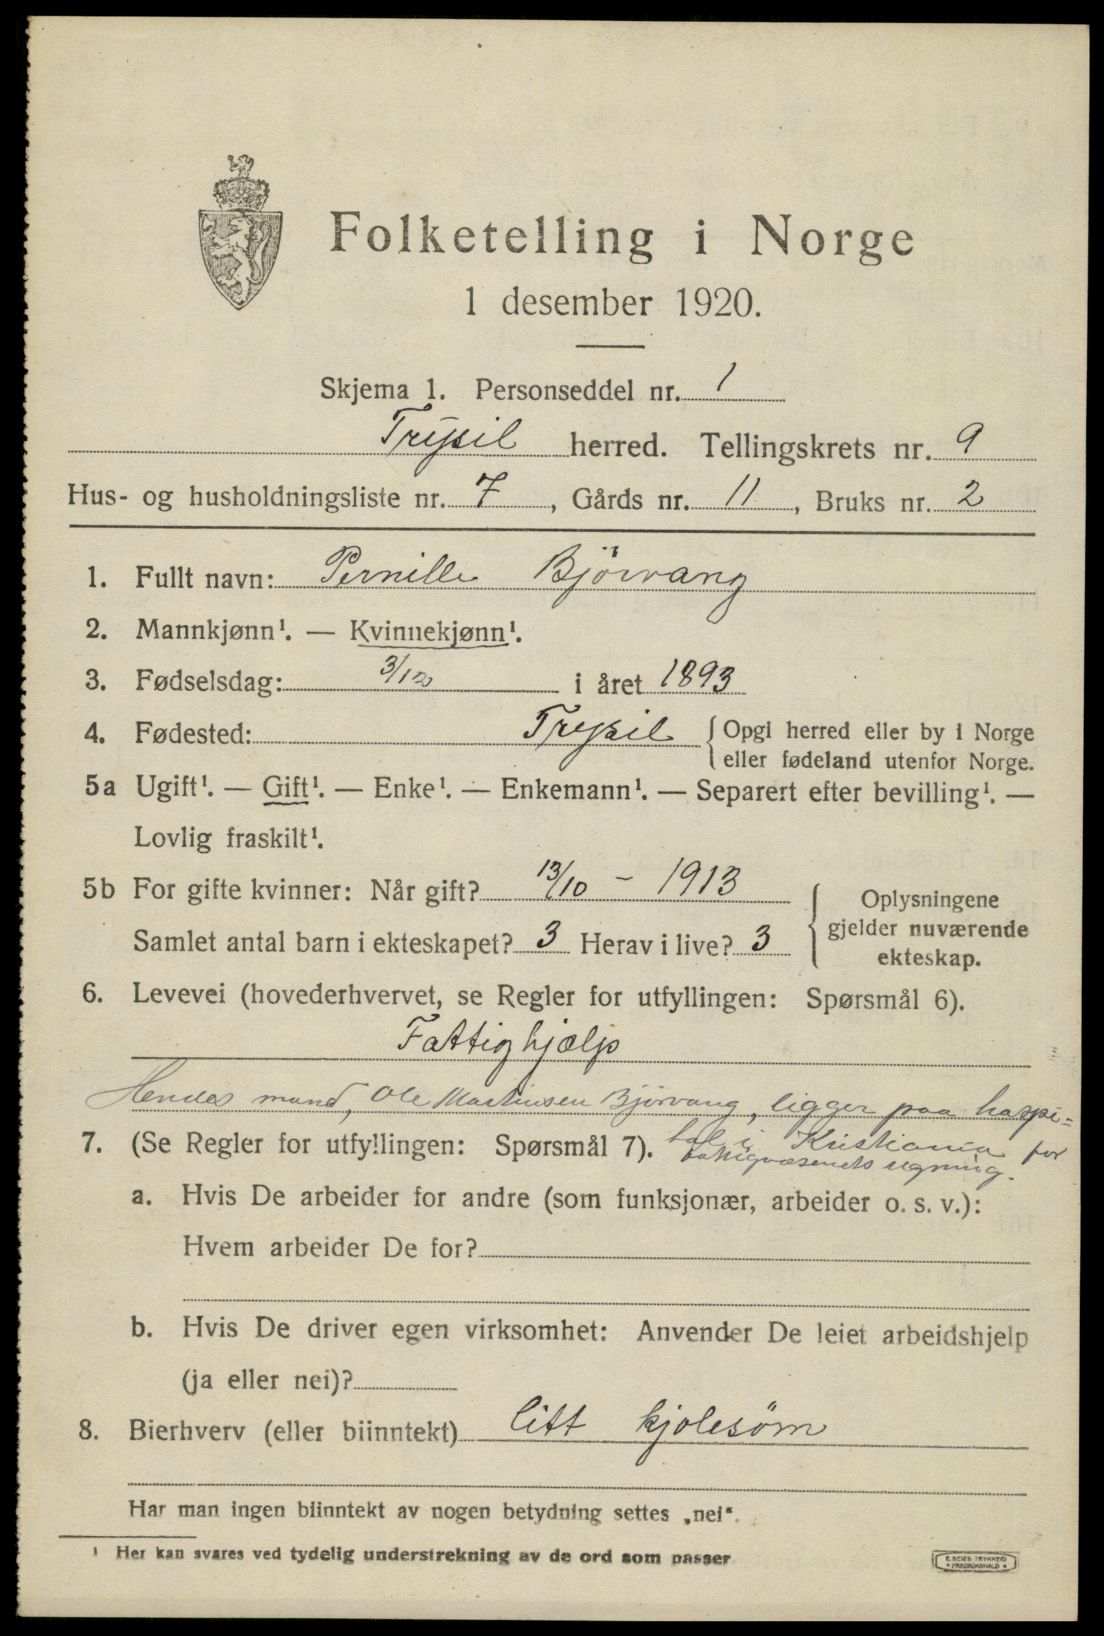 Folketelling i Norge
1 desember 1920.
Skjema 1. Personseddel nr. 1
Trysil herred. Tellingskrets nr. 9
Hus- og husholdningsliste nr. 7, Gårds nr. 11, Bruks nr. 2
1. Fullt navn: Pernille Bjørvang
2. Mannkjønn¹. — Kvinnekjønn¹.
3. Fødselsdag: 3/10 i året 1893
4. Fødested: Trysil { Opgi herred eller by i Norge
eller fødeland utenfor Norge.
5a Ugift¹. — Gift¹. — Enke¹. — Enkemann¹. — Separert efter bevilling¹. —
Lovlig fraskilt¹.
5b For gifte kvinner: Når gift? 13/10 - 1913
Samlet antal barn i ekteskapet? 3 Herav i live? 3
{ Oplysningene
gjelder nuværende
ekteskap.
6. Levevei (hovederhvervet, se Regler for utfyllingen: Spørsmål 6).
Fattighjælp
Hendes mand, Ole Martinsen Bjørvang, ligger paa haspi=
tal i Kristiania for
fattigvæsenets regning.
7. (Se Regler for utfyllingen: Spørsmål 7).
a. Hvis De arbeider for andre (som funksjonær, arbeider o. s. v.):
Hvem arbeider De for?
b. Hvis De driver egen virksomhet: Anvender De leiet arbeidshjelp
(ja eller nei)?
8. Bierhverv (eller biinntekt) litt kjolesøm
Har man ingen biinntekt av nogen betydning settes „nei“.
¹ Her kan svares ved tydelig understrekning av de ord som passer
E. SEM'S TRYKKERI
FREDRIKSHALD